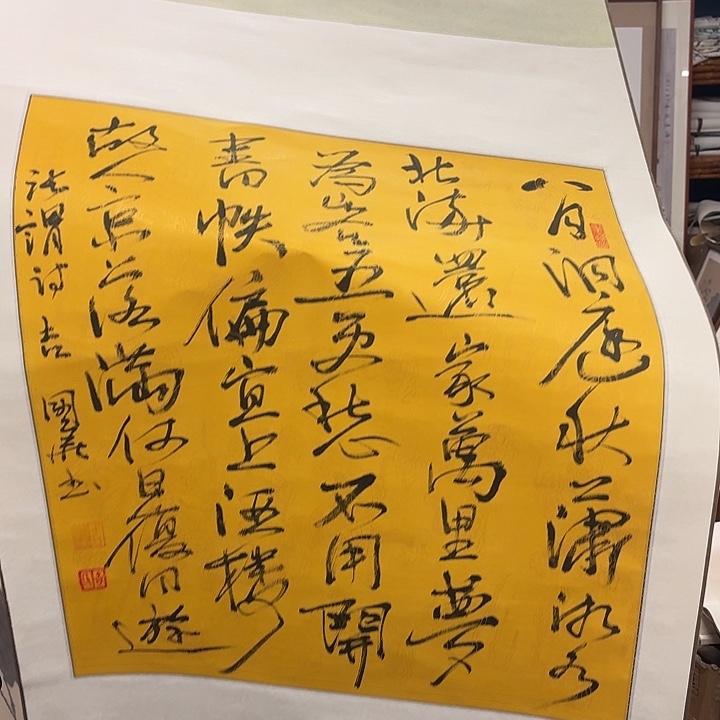 八月洞庭秋瀟湘水
北流還家萬里夢
為客五更愁不用開
書帙偏宜上酒樓
故人京洛滿何日復同遊
張謂詩 國 书